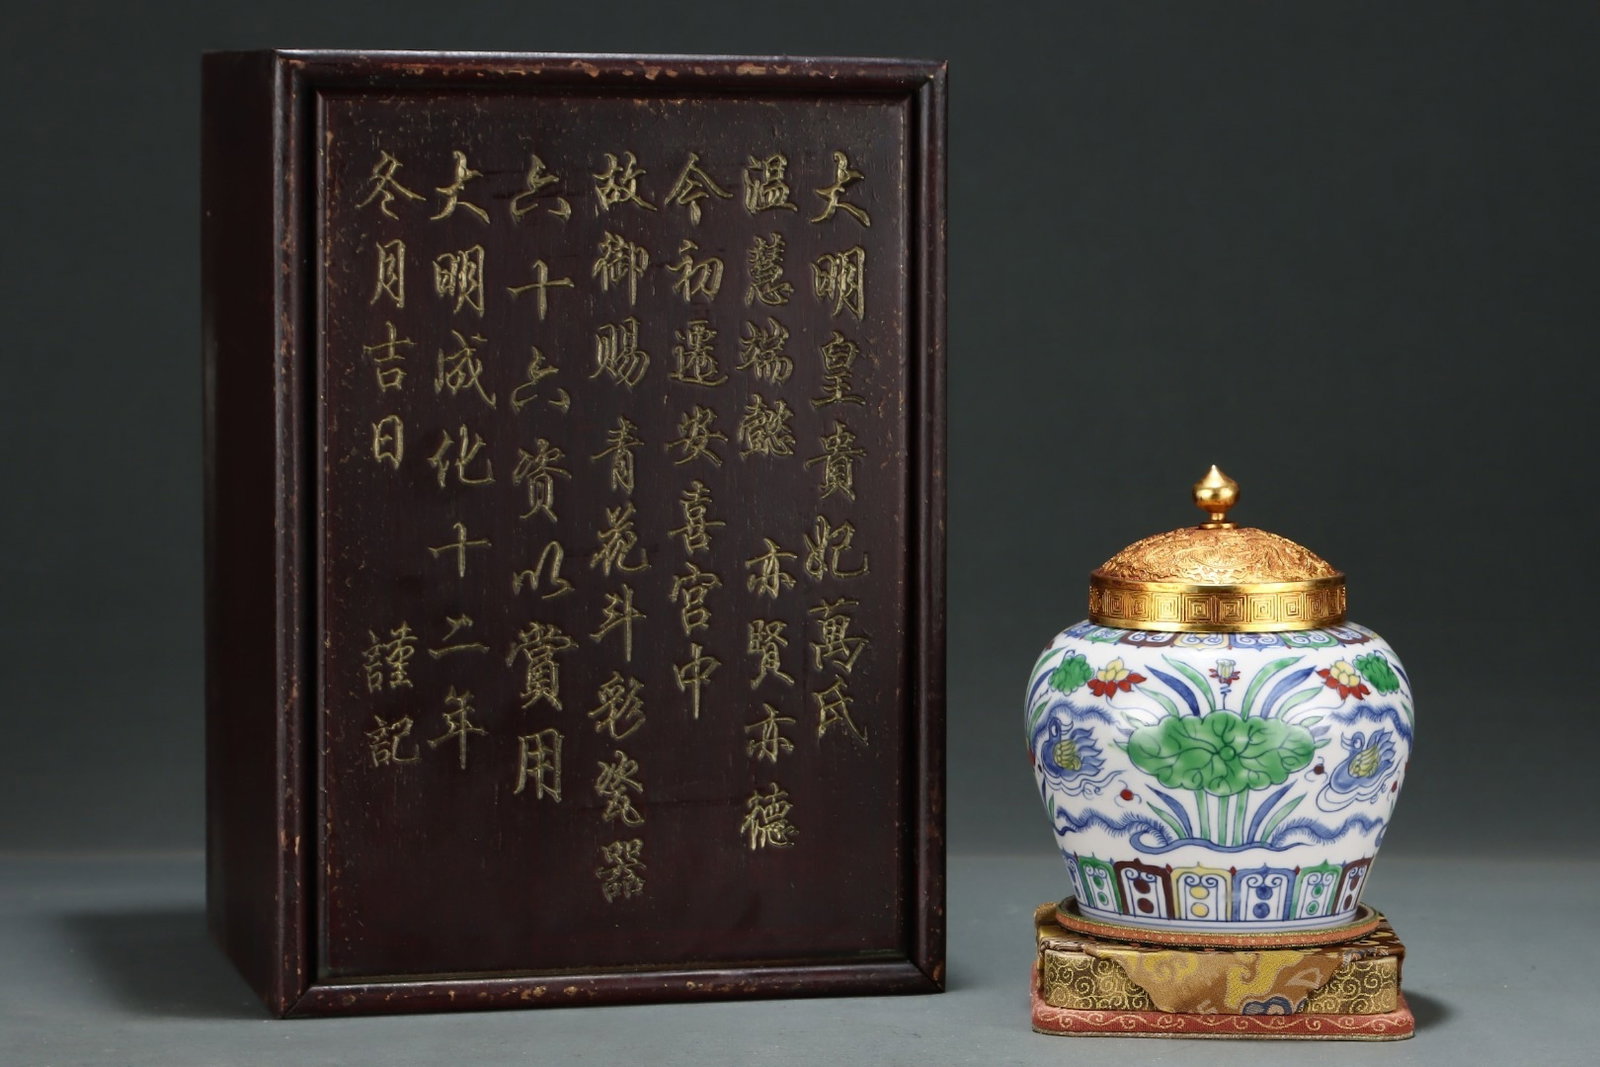 大明皇貴妃萬氏
溫慧端懿 亦賢亦德
今初遷安喜宮中
故御賜 青花斗彩瓷器
六十六資以賞用
大明成化十二年
冬月吉日 謹記